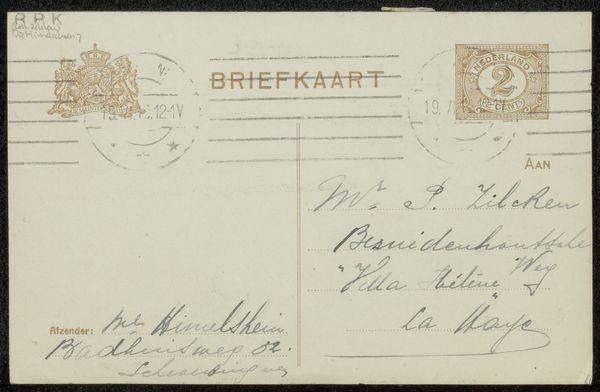 R P K
BRIEFKAART
NEDERLAND
2
CENT
12-1V
AAN
Mr P. Zilcken
Bezuidenhoutsche
Weg
"Villa Hélène"
La Haye
Afzender: Himelsheim
Badhuisweg 82.
Scheveningen